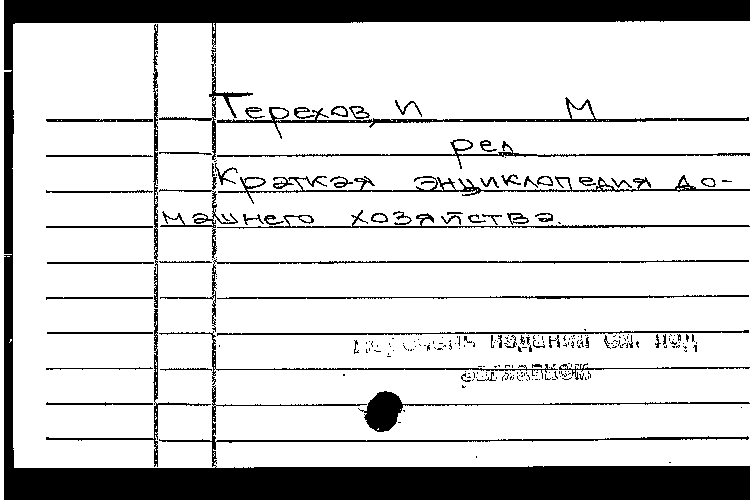 Терехов, И М
ред
Краткая энциклопедия до-
машнего хозяйства.
Перечень изданий см. под
заглавием